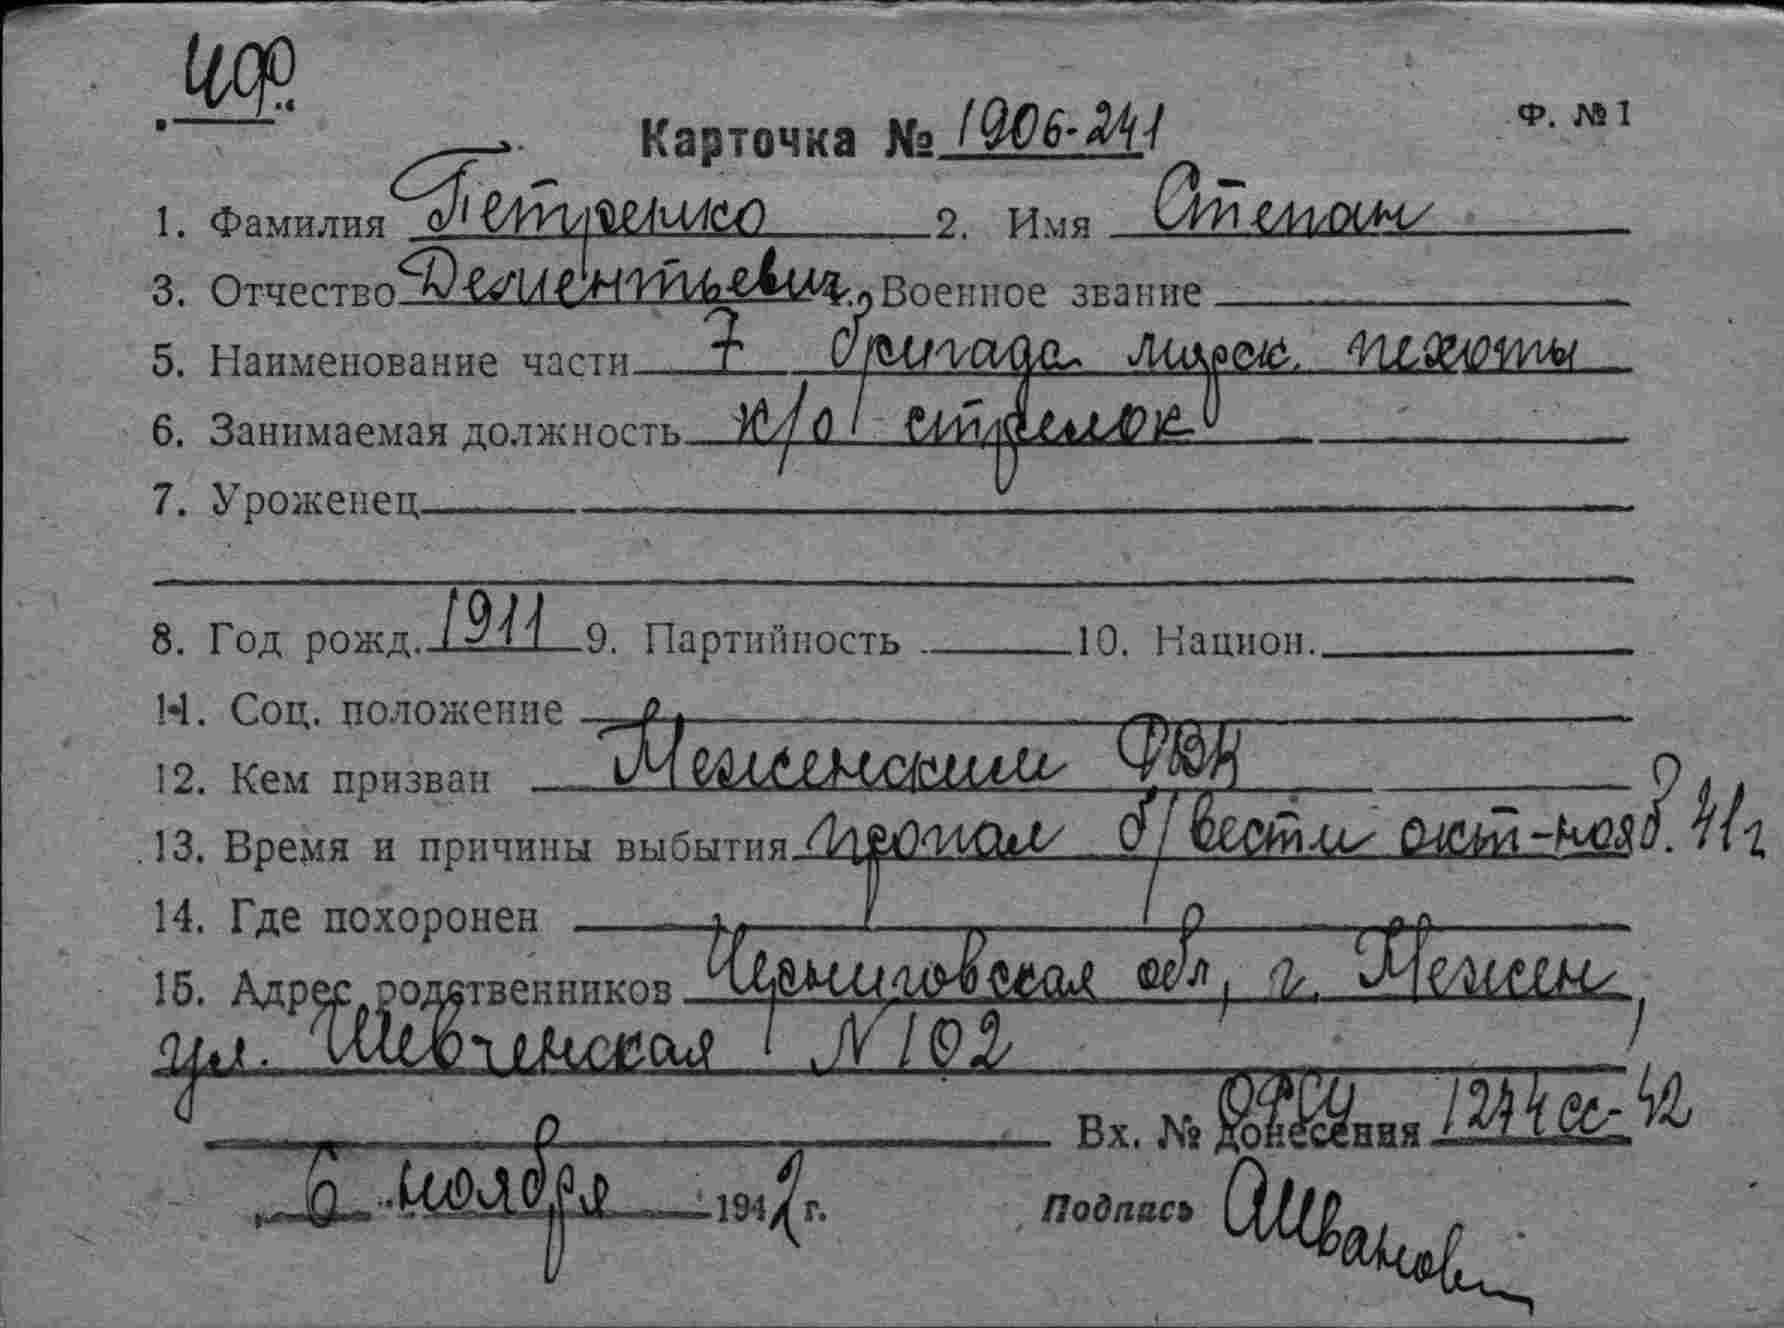 Карточка № 1906-241
Ф. №1
1. Фамилия Петренко 2. Имя Степан
3. Отчество Дементьевич Военное звание
5. Наименование части 7 бригада морск. пехоты
6. Занимаемая должность к/о стрелок
7. Уроженец
8. Год рожд. 1911 9. Партийность 10. Национ.
11. Соц. положение
12. Кем призван Неженским РВК
13. Время и причины выбытия пропал б/вести окт-нояб. 41г
14. Где похоронен
15. Адрес родственников Черниговская обл, г. Нежен,
ул. Шевченская N 102
Вх. № донесения 1274сс-42
6 ноября 1942 г. Подпись